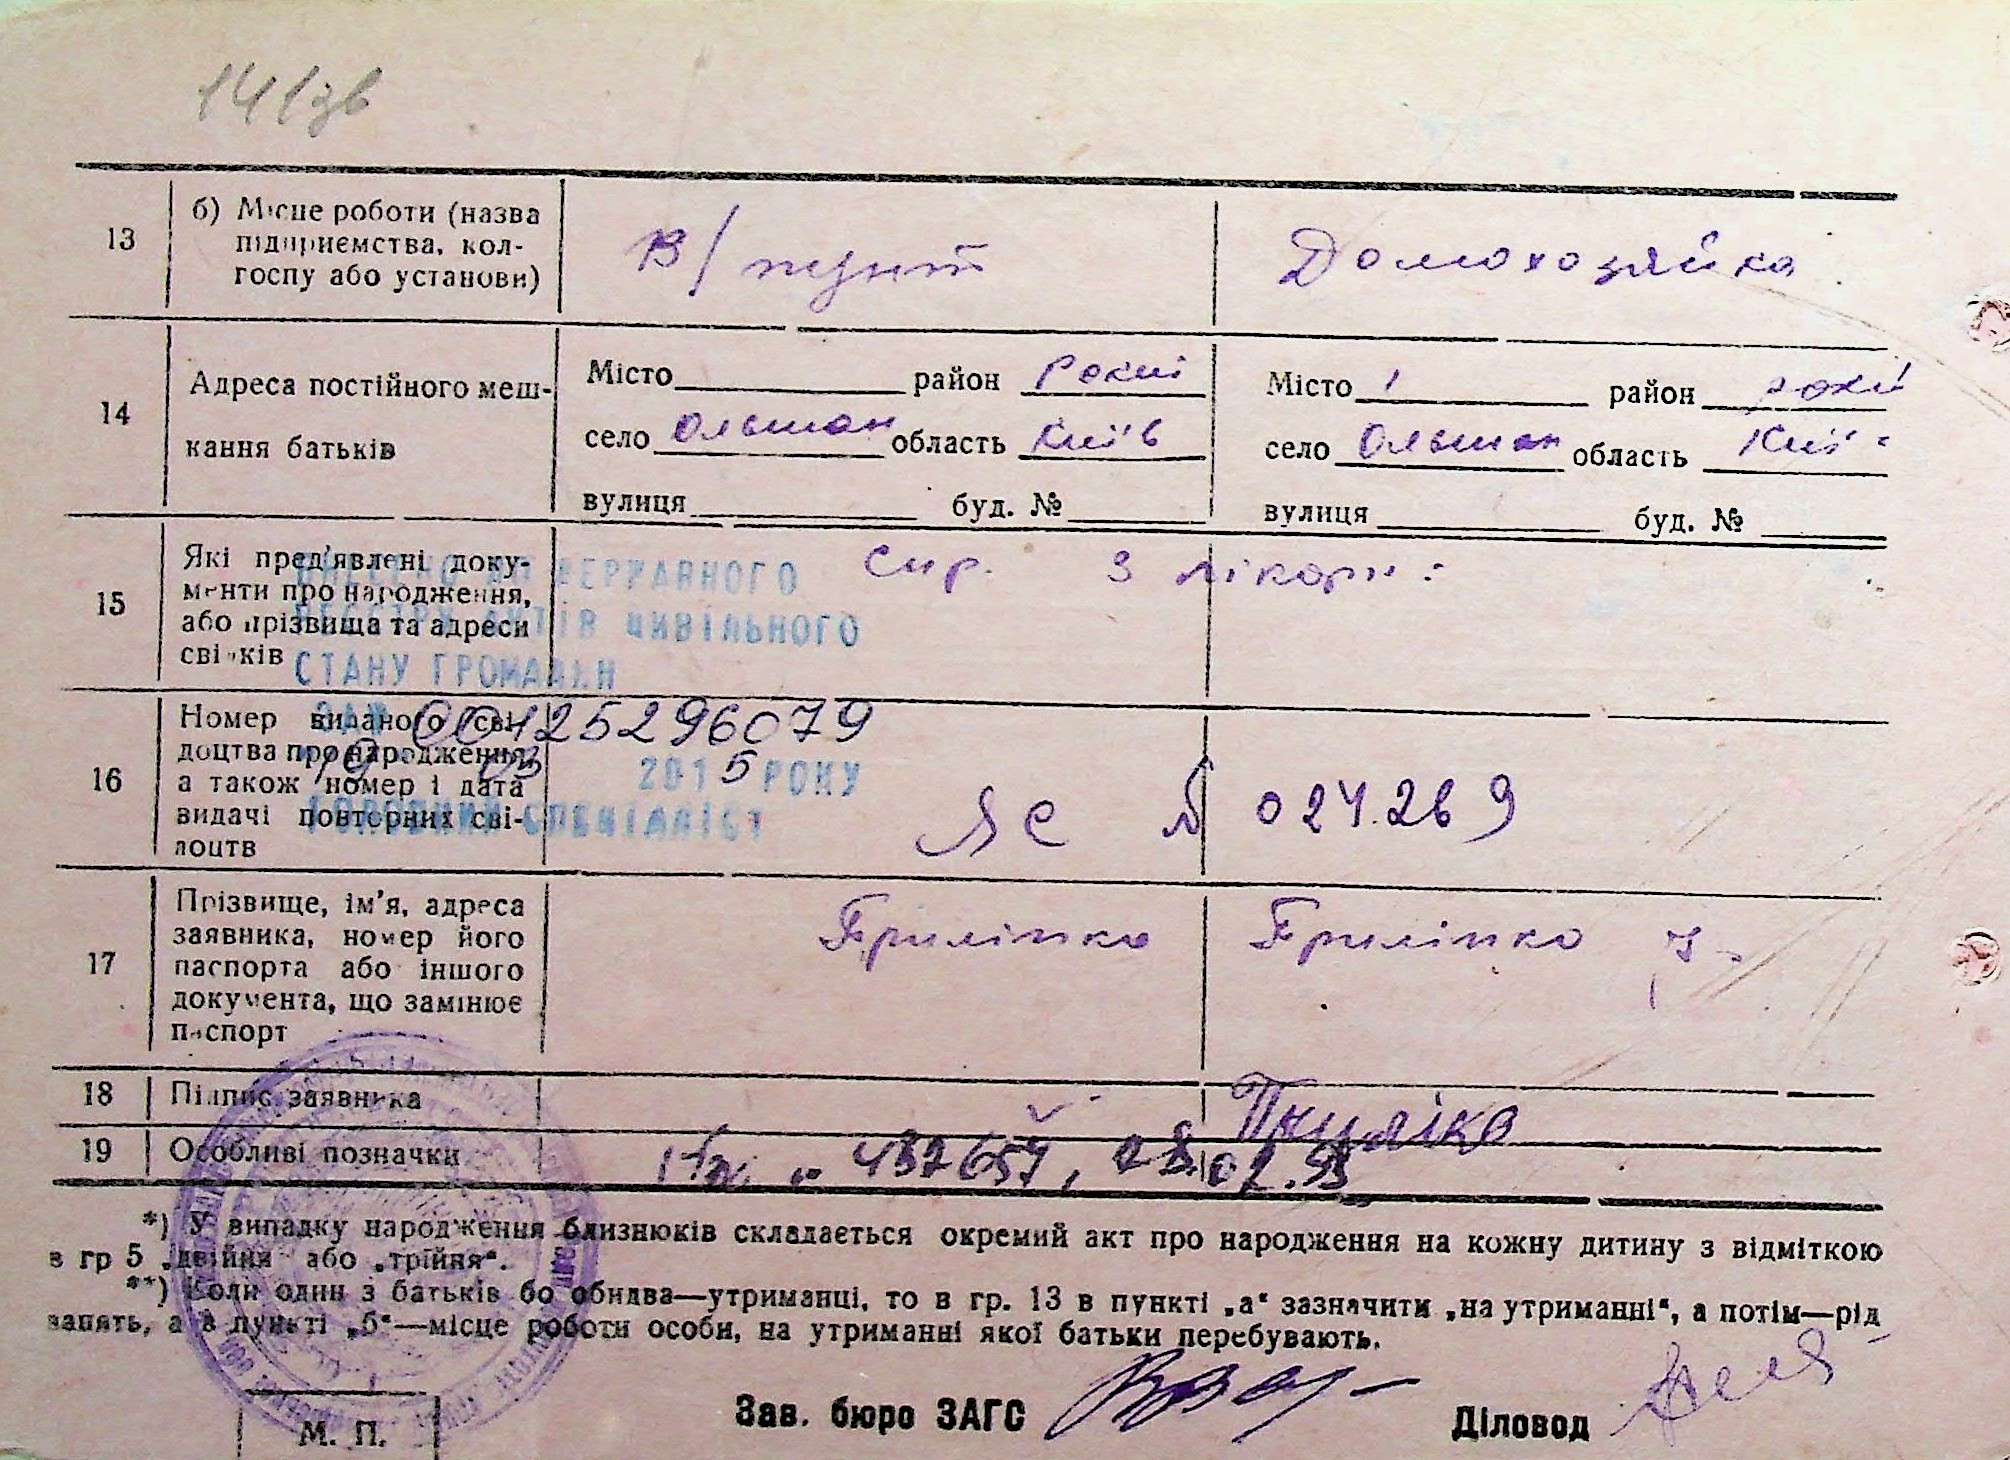 141зв
13
б) Місце роботи (назва
підприємства, кол-
госпу або установи)
В/пункт
Домохозяйка
14
Адреса постійного меш-
кання батьків
Місто район Рокит
село Ольшан область Київ
вулиця буд. №
Місто район
село Ольшан область Київ
вулиця буд. №
15
Які пред'явлені доку-
менти про народження,
або прізвища та адреси
свідків
Спр. з лікарн:
ВНЕСЕНО ДО ДЕРЖАВНОГО
РЕЄСТРУ АКТІВ ЦИВІЛЬНОГО
СТАНУ ГРОМАДЯН
ЗА № 00125296079
19 03 2015 РОКУ
ГОЛОВНИЙ СПЕЦІАЛІСТ
16
Номер виданого сві-
доцтва про народження
а також номер і дата
видачі повторних сві-
доцтв
ЯС № 024.269
17
Прізвище, ім'я, адреса
заявника, номер його
паспорта або іншого
документа, що замінює
паспорт
Приліпко Приліпко
18
Підпис заявника
19
Особливі позначки
432657, 28.02.55
*) У випадку народження близнюків складається окремий акт про народження на кожну дитину з відміткою
в гр 5 „двійня“ або „трійня“.
**) Коли один з батьків бо обидва—утриманці, то в гр. 13 в пункті „а“ зазначити „на утриманні“, а потім—рід
занять, а в пункті „б“—місце роботи особи, на утриманні якої батьки перебувають.
М. П.
Зав. бюро ЗАГС
Діловод